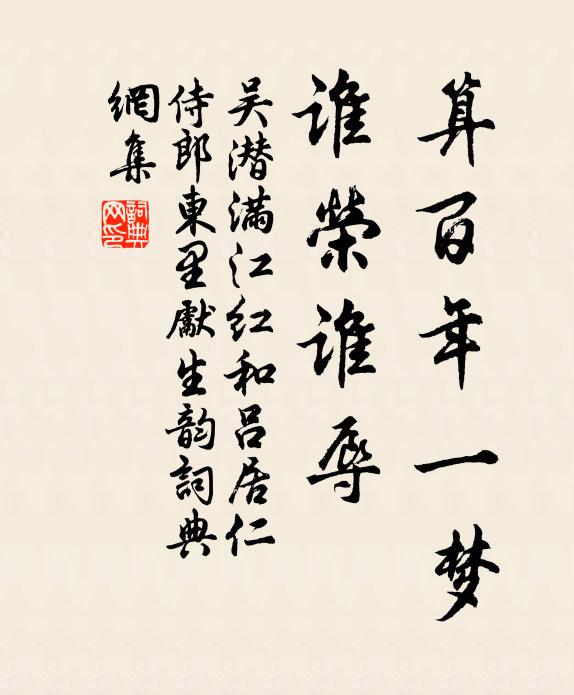 算百年一梦
谁荣谁辱
吴潜满江红和吕居仁
侍郎东里献生韵词典
網集
詞典網印